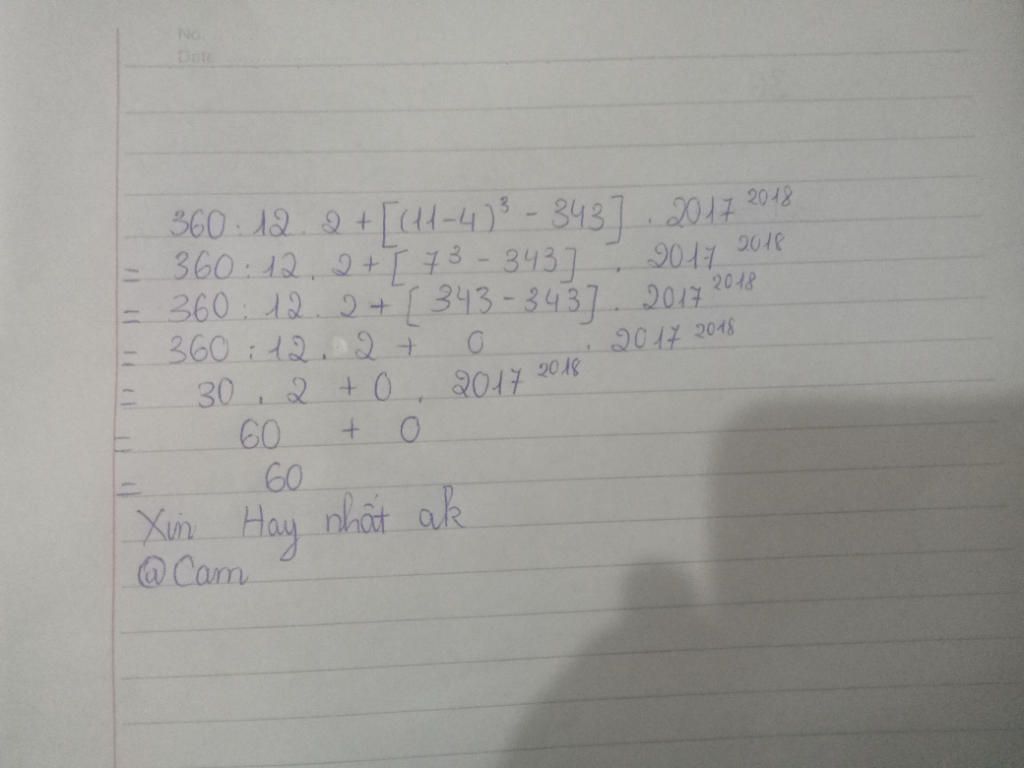 No.
Date
360 : 12 . 2 + [(11-4)³ - 343] . 2017²⁰¹⁸
= 360 : 12 . 2 + [ 7³ - 343] . 2017²⁰¹⁸
= 360 : 12 . 2 + [ 343 - 343] . 2017²⁰¹⁸
= 360 : 12 . 2 + 0 . 2017²⁰¹⁸
= 30 . 2 + 0 . 2017²⁰¹⁸
= 60 + 0
= 60
Xin Hay nhất ak
@Cam